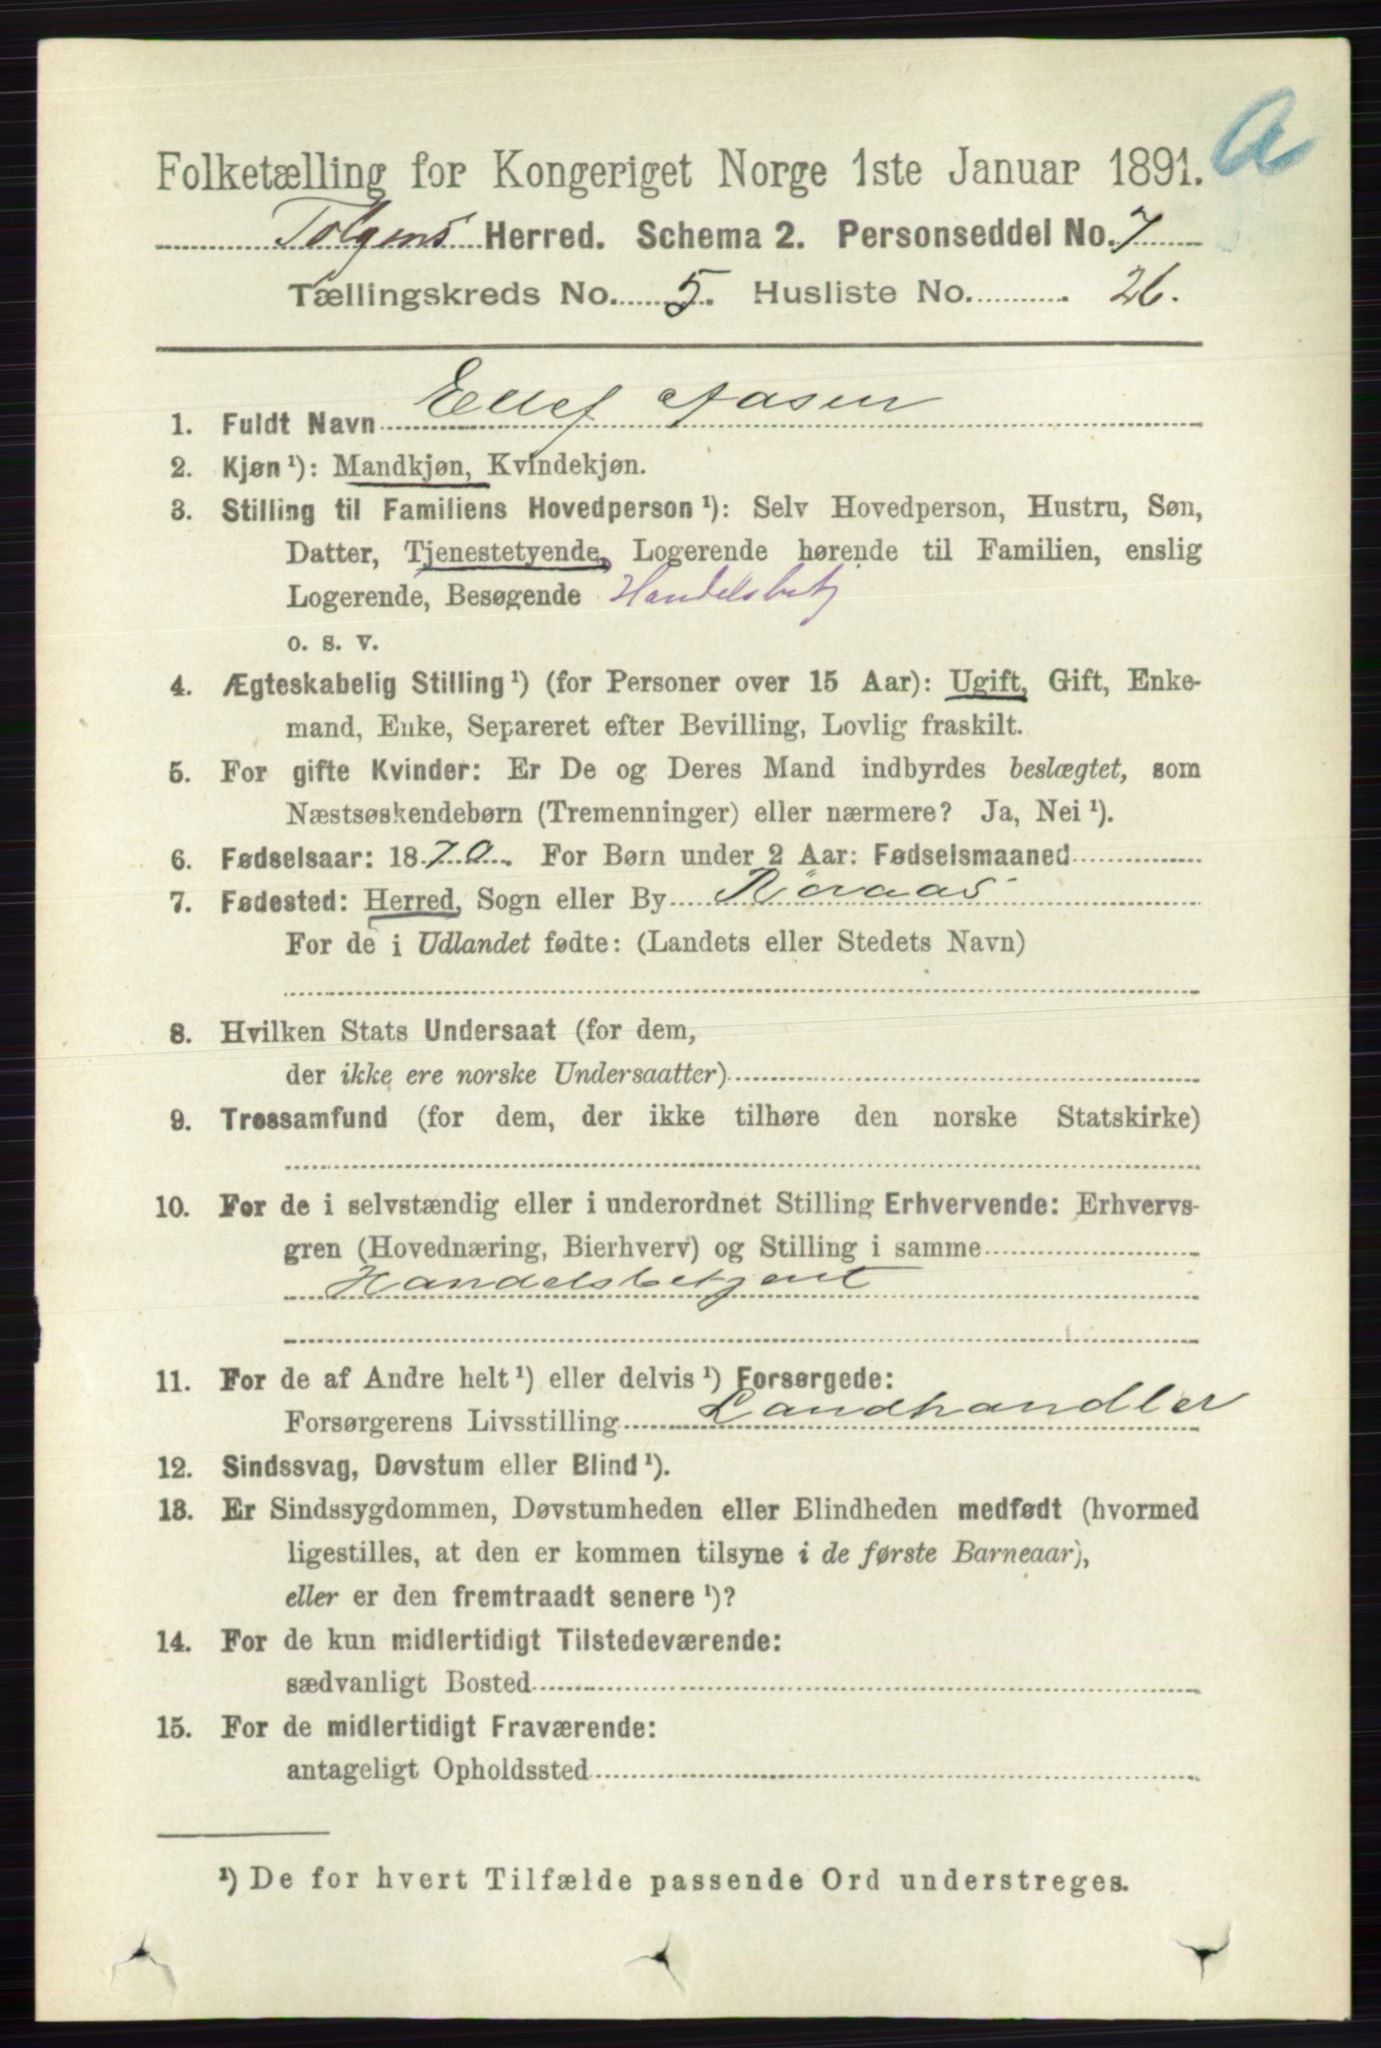 A
Folketælling for Kongeriget Norge 1ste Januar 1891.
Tolgens Herred. Schema 2. Personseddel No. 7
Tællingskreds No. 5. Husliste No. 26.
1. Fuldt Navn Ellef Aasen
2. Kjøn ¹): Mandkjøn, Kvindekjøn.
3. Stilling til Familiens Hovedperson ¹): Selv Hovedperson, Hustru, Søn,
Datter, Tjenestetyende, Logerende hørende til Familien, enslig
Logerende, Besøgende Handelsbetj
o. s. v.
4. Ægteskabelig Stilling ¹) (for Personer over 15 Aar): Ugift, Gift, Enke-
mand, Enke, Separeret efter Bevilling, Lovlig fraskilt.
5. For gifte Kvinder: Er De og Deres Mand indbyrdes beslægtet, som
Næstsøskendebørn (Tremenninger) eller nærmere? Ja, Nei ¹).
6. Fødselsaar: 1870. For Børn under 2 Aar: Fødselsmaaned
7. Fødested: Herred, Sogn eller By Røraas
For de i Udlandet fødte: (Landets eller Stedets Navn)
8. Hvilken Stats Undersaat (for dem,
der ikke ere norske Undersaatter)
9. Trossamfund (for dem, der ikke tilhøre den norske Statskirke)
10. For de i selvstændig eller i underordnet Stilling Erhvervende: Erhvervs-
gren (Hovednæring, Bierhverv) og Stilling i samme
Handelsbetjent
11. For de af Andre helt ¹) eller delvis ¹) Forsørgede:
Forsørgerens Livsstilling Landhandler
12. Sindssvag, Døvstum eller Blind ¹).
13. Er Sindssygdommen, Døvstumheden eller Blindheden medfødt (hvormed
ligestilles, at den er kommen tilsyne i de første Barneaar),
eller er den fremtraadt senere ¹)?
14. For de kun midlertidigt Tilstedeværende:
sædvanligt Bosted
15. For de midlertidigt Fraværende:
antageligt Opholdssted
¹) De for hvert Tilfælde passende Ord understreges.